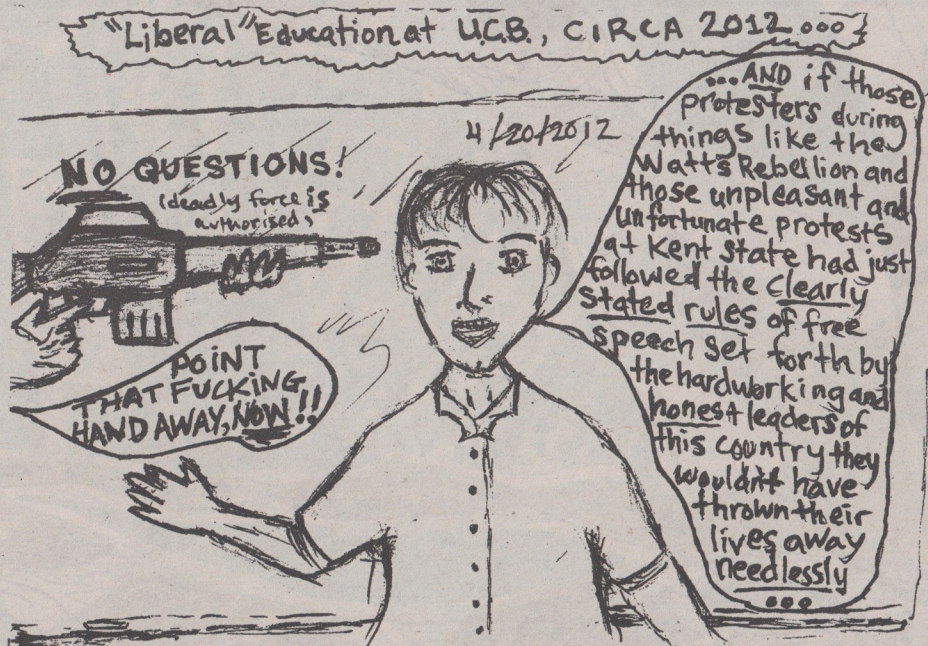 "Liberal" Education at U.C.B., CIRCA 2012...
4/20/2012
NO QUESTIONS!
(deadly force is
authorised)
POINT
THAT FUCKING
HAND AWAY, NOW!!
...AND if those
protesters during
things like the
Watts Rebellion and
those unpleasant and
unfortunate protests
at Kent State had just
followed the clearly
stated rules of free
speech set forth by
the hardworking and
honest leaders of
this country they
wouldn't have
thrown their
lives away
needlessly
...